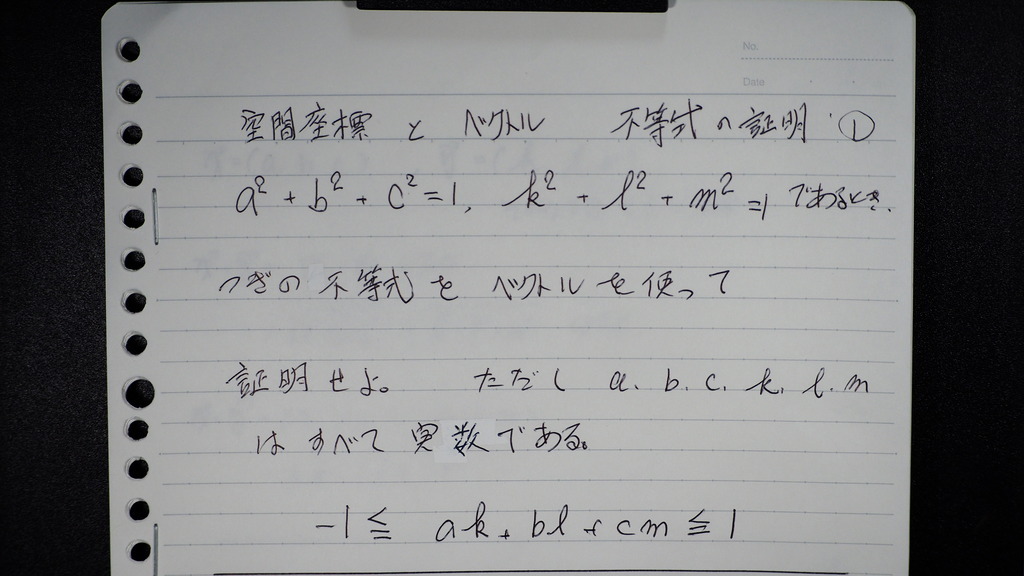 No.
Date
空間座標 と ベクトル 不等式の証明 ①
a² + b² + c² = 1, k² + l² + m² = 1 であるとき、
つぎの 不等式 を ベクトル を 使って
証明せよ。 ただし a. b. c. k. l. m
は すべて 実数である。
-1 ≦ ak + bl + cm ≦ 1